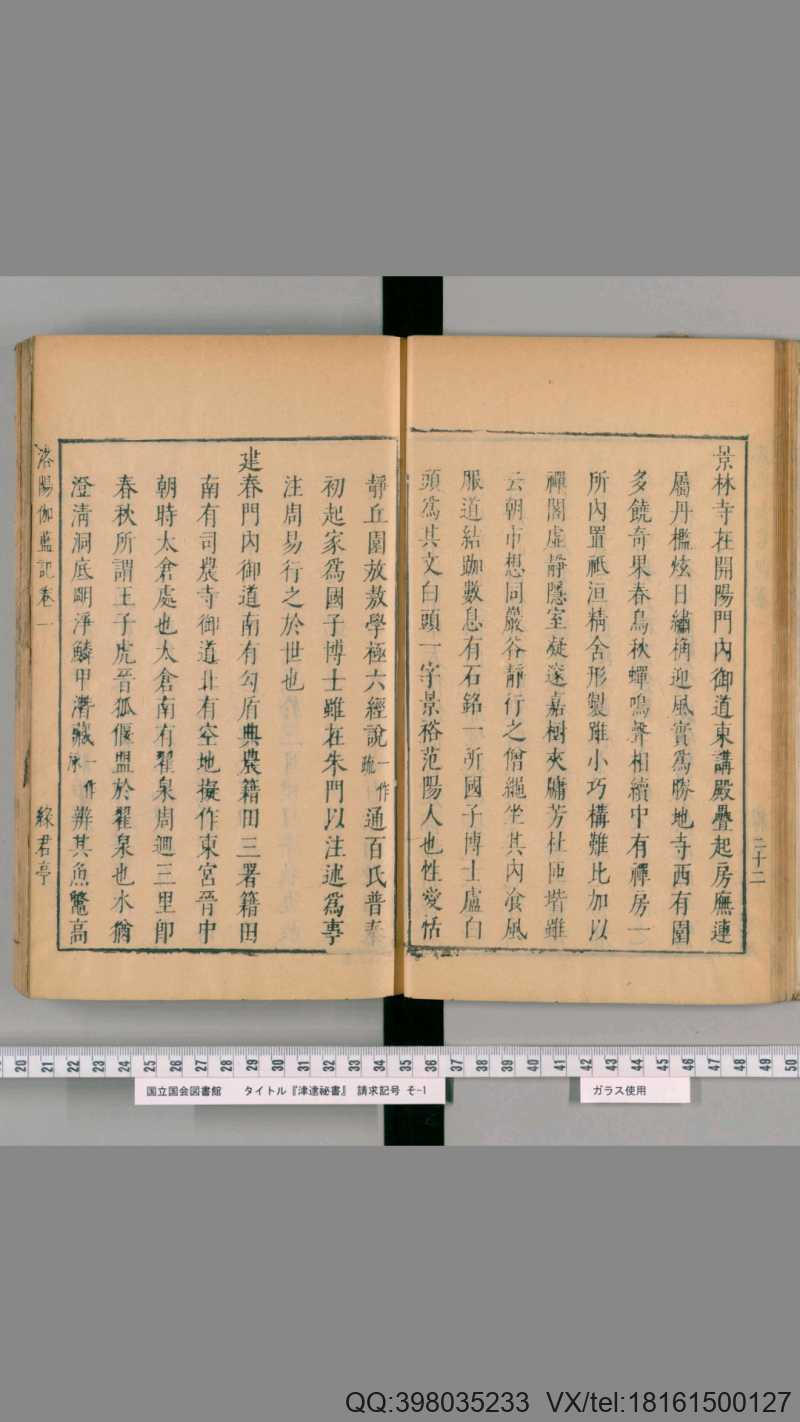 景林寺在開陽門內御道東講殿疊起房廡連
屬丹檻炫日繡桷迎風實爲勝地寺西有園
多饒奇果春鳥秋蟬鳴聲相續中有禪房一
所內置祇洹精舍形製雖小巧構難比加以
禪閣虛靜隱室凝邃嘉樹夾牖芳杜匝堦雖
云朝市想同巖谷靜行之僧繩坐其內飡風
服道結跏數息有石銘一所國子博士盧白
頭爲其文白頭一字景裕范陽人也性愛恬
二十二
靜丘園放敖學極六經說一作疏通百氏普泰
初起家爲國子博士雖在朱門以注述爲事
注周易行之於世也
建春門內御道南有勾盾典農籍田三署籍田
南有司農寺御道北有空地擬作東宮晉中
朝時太倉處也太倉南有翟泉周迴三里卽
春秋所謂王子虎晉狐偃盟於翟泉也水猶
澄淸洞底明淨鱗甲潛藏一作辨其魚鼈高
洛陽伽藍記卷一
綠君亭
20 21 22 23 24 25 26 27 28 29 30 31 32 33 34 35 36 37 38 39 40 41 42 43 44 45 46 47 48 49 50
国立国会図書館 タイトル『津逮秘書』 請求記号 そ-1
ガラス使用
QQ:398035233 VX/tel:18161500127